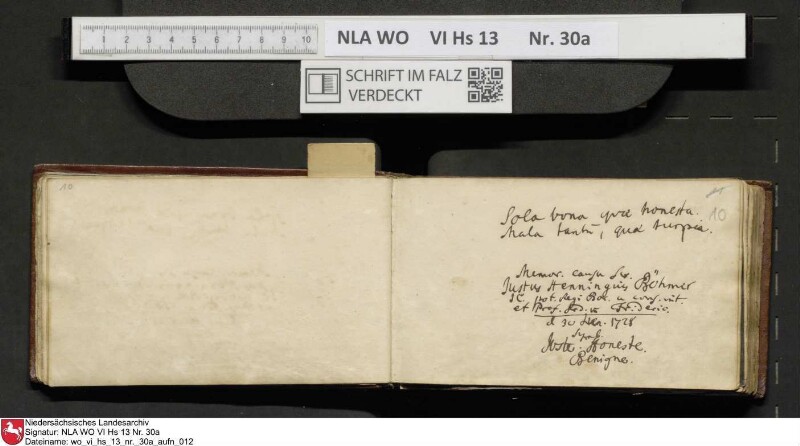 0 1 2 3 4 5 6 7 8 9 10
NLA WO VI Hs 13 Nr. 30a
SCHRIFT IM FALZ
VERDECKT
10
10
Sola bona quae honesta.
Mala tantū, quae turpia.
Memor. causa scr.
Justus Henningius Böhmer
JC. pot. Regi Bor. a
et Prof. Ord. Frideric.
d 30 1728
Symb.
Juste. Honeste.
Benigne.
Niedersächsisches Landesarchiv
Signatur: NLA WO VI Hs 13 Nr. 30a
Dateiname: wo_vi_hs_13_nr._30a_aufn_012